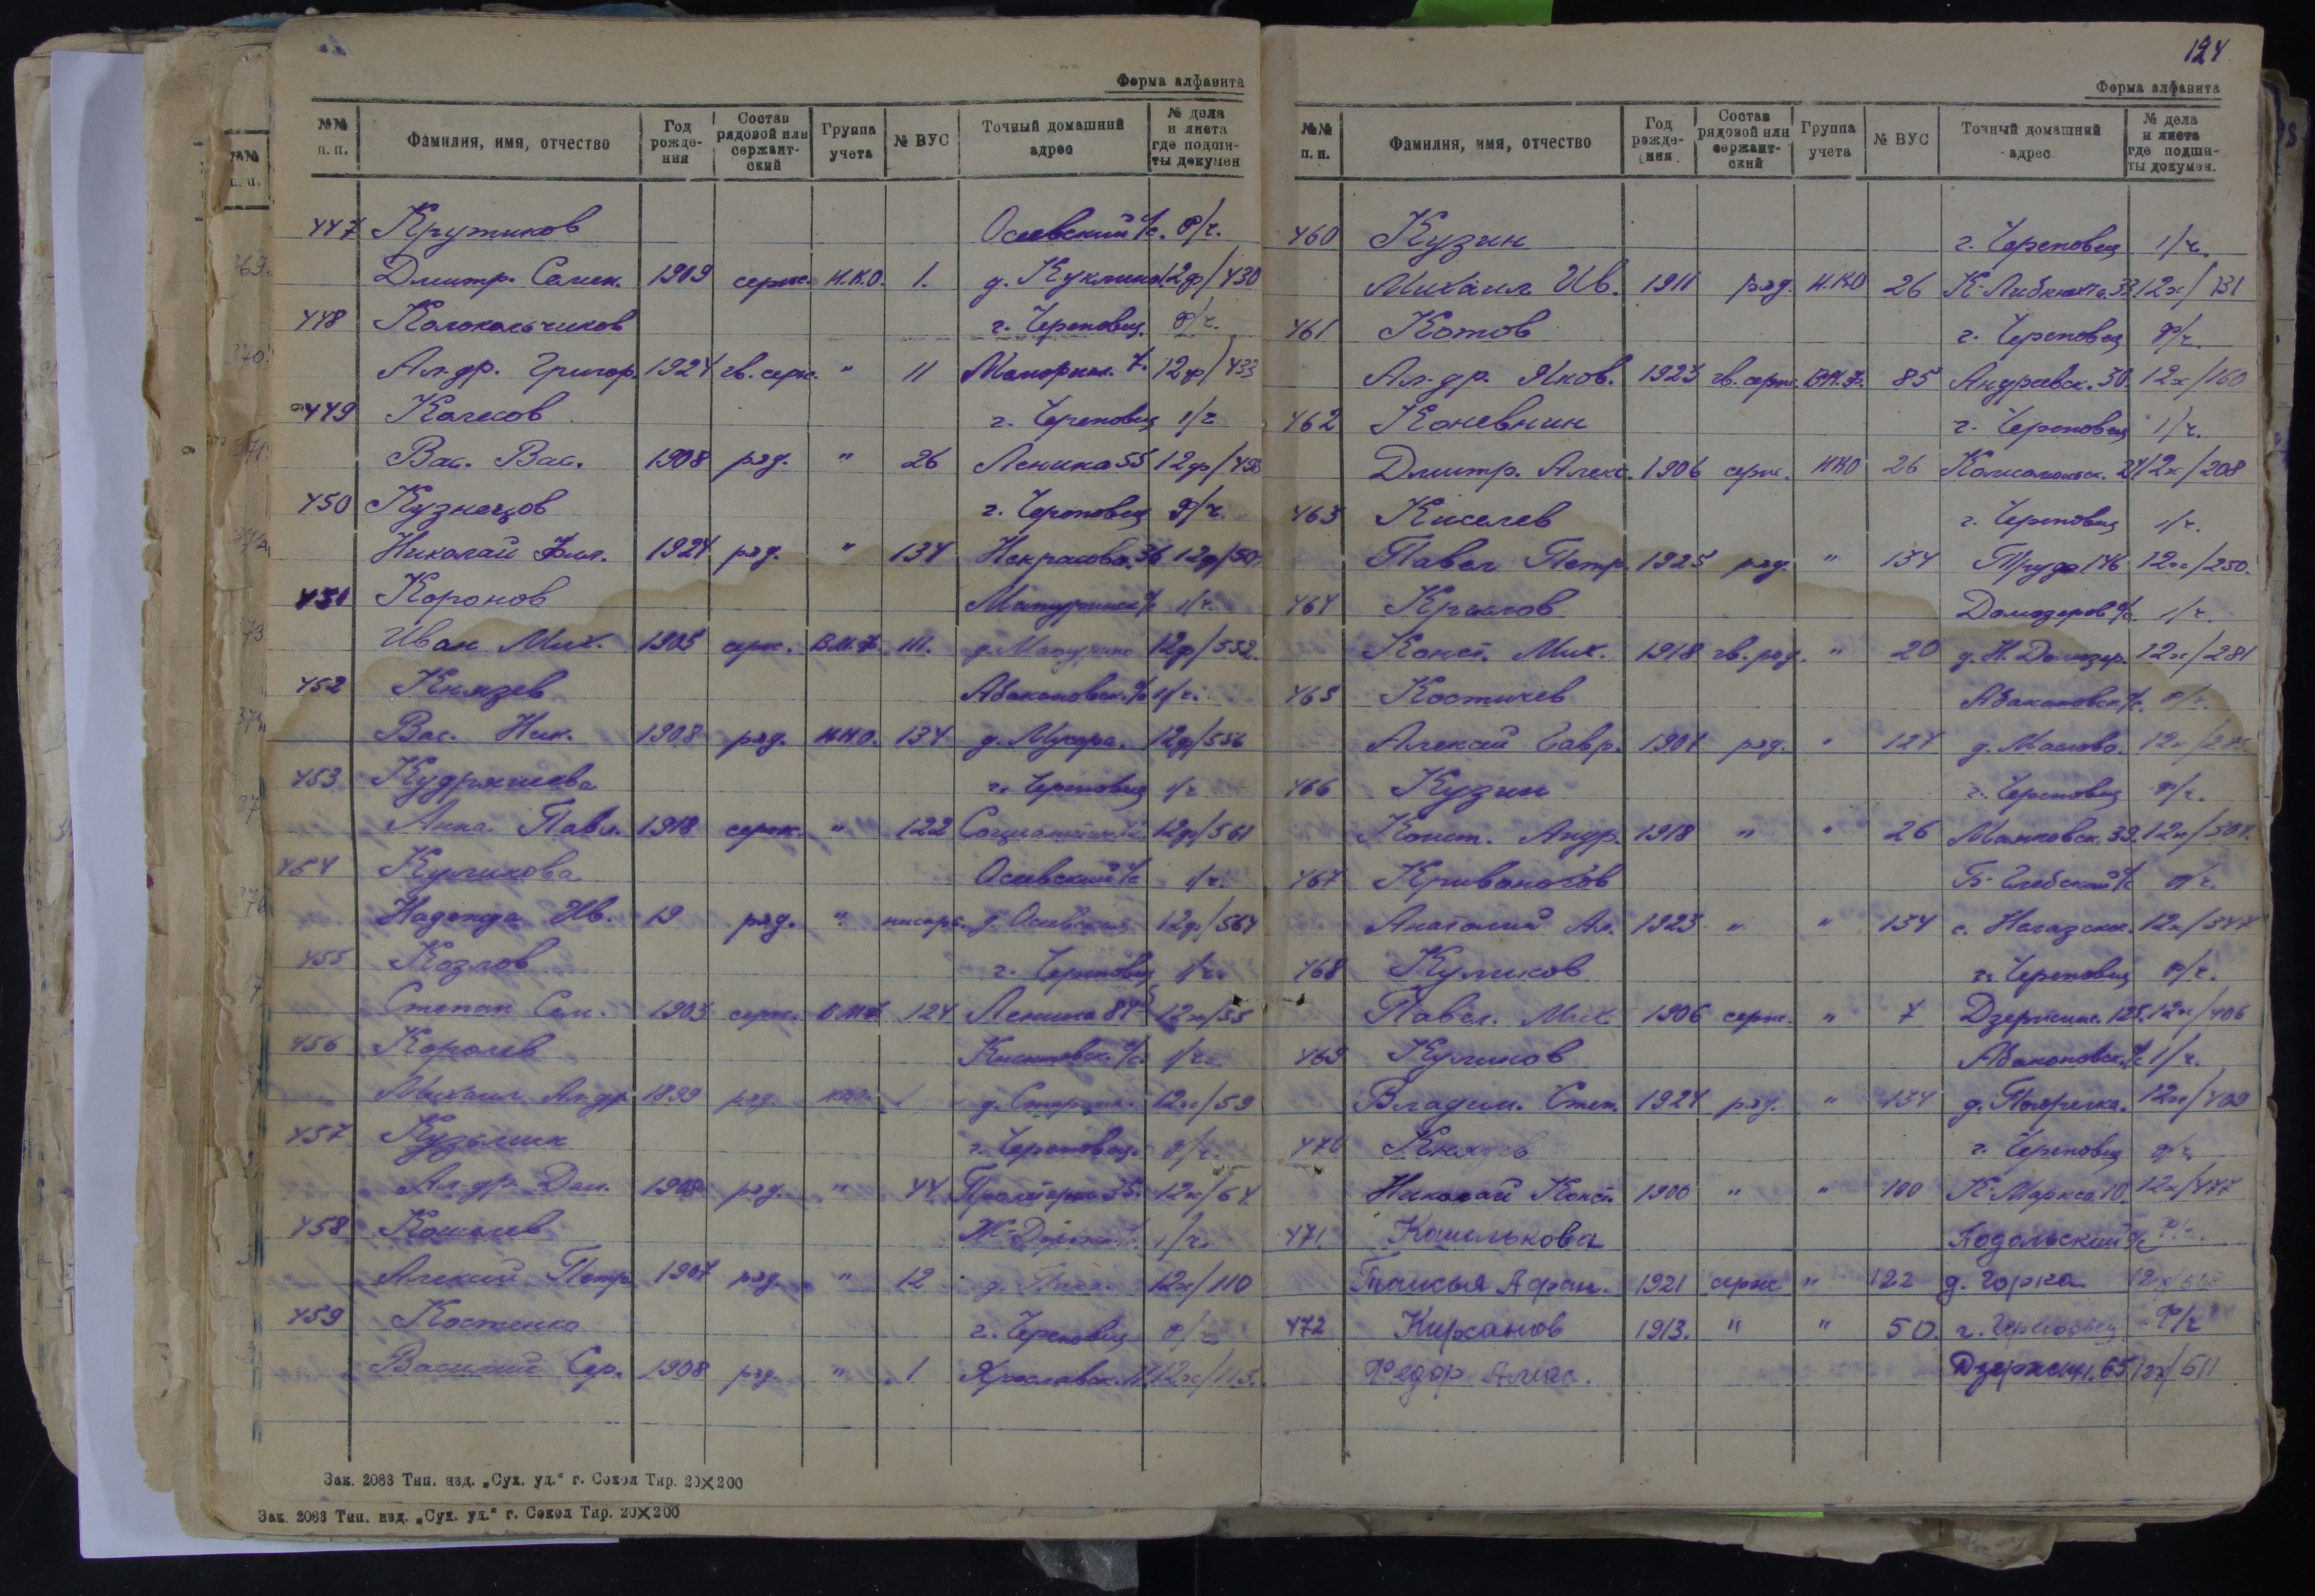 Форма алфавита
№№ п. п. Фамилия, имя, отчество Год рождения Состав рядовой или сержантский Группа учета № ВУС Точный домашний адрес № дела и листа где подшиты докумен
447 Крутиков Осеевский с/с. ф/ч.
Дмитр. Семен. 1909 серж. Н.К.О. 1. д. Куклино 12ф/430
448 Колокольчиков г. Череповец ф/ч.
Ал-др. Григор. 1924 гв. серж. " 11 Моторин. 7. 12ф/433
449 Колесов г. Череповец 1/ч
Вас. Вас. 1908 ряд. " 26 Ленина 55 12ф/
450 Кузнецов г. Череповец ф/ч.
Николай Фил. 1924 ряд. " 134 Некрасова. 36 12ф/
451 Коронов Матуринск с/с 1/ч.
Иван Мих. 1905 серж. В.М.Ф. 111. д. Матурино 12ф/552.
452 Князев Абакановск. с/с 1/ч.
Вас. Ник. 1908 ряд. Н.К.О. 134 д. Мухора. 12ф/556
453 Кудряшева г. Череповец 1/ч
Анна Павл. 1918 серж. " 122 12ф/561
454 Куликова Осеевский с/с 1/ч.
Надежда Ив. 19 ряд. " писарь. д. 12ф/564
455 Козлов г. Череповец 1/ч.
Степан Сем. 1903 серж. В.М.Ф. 124 Ленина 84 12х/55
456 Королев с/с. 1/ч.
Михаил Ал-др. 1899 ряд. НКО 1 д. 12х/59
457 Кузьмин г. Череповец. ф/ч.
Ал-др. 1908 ряд. " 44 Пролетарск 35. 12х/64
458 Кошелев 1/ч.
Алексей Петр. 1907 ряд. " 12 д. 12х/110
459 Костенко г. Череповец ф/ч
Василий Сер. 1908 ряд. " 1 Ярославск. 12х/115.
Зак. 2083 Тип. изд. „Сух. уд.“ г. Сокол Тир. 20×200
Зак. 2083 Тип. изд. „Сух. уд.“ г. Сокол Тир. 20×200
124
Форма алфавита
№№ п. п. Фамилия, имя, отчество Год рождения Состав рядовой или сержантский Группа учета № ВУС Точный домашний адрес № дела и листа где подшиты докумен.
460 Кузин г. Череповец 1/ч.
Михаил Ив. 1911 ряд. Н.КО 26 К-Либкнехта. 33 12х/131
461 Котов г. Череповец ф/ч.
Ал-др. Яков. 1923 гв. серж. В.М.Ф. 85 Андреевск. 30. 12х/160
462 Коневнин г. Череповец 1/ч.
Дмитр. Алекс. 1906 серж. НКО 26 Комсомольск. 24 12х/208
463 Киселев г. Череповец 1/ч.
Павел Петр. 1925 ряд. " 134 Труда 146 12х/250.
464 Крылов Домозеров с/с. 1/ч.
Конст. Мих. 1918 гв. ряд. " 20 д. Н. Домозер. 12х/281
465 Костичев Абакановск с/с. ф/ч.
Алексей Гавр. 1904 ряд. " 124 д. Маслово. 12х/
466 Кузин г. Череповец ф/ч.
Конст. Андр. 1918 " " 26 Маяковск. 39. 12х/304.
467 Кривоногов Б-Глебский с/с ф/ч.
Анатолий Ал. 1923 " " 134 с. 12х/
468 Куликов г. Череповец ф/ч.
Павел. Мих. 1906 серж. " 7 Дзержинс. 125. 12х/406
469 Куликов Абакановск. с/с 1/ч.
Владим. Степ. 1924 ряд. " 134 д. 12х/409
470 Князев г. Череповец ф/ч
Николай Конст. 1900 " " 100 К-Маркса 10. 12х/477
471 Кошелькова Подольский с/с ф/ч.
Таисья Афан. 1921 серж " 122 д. Горка 12х/
472 Кирсанов 1913. " " 50. г. Череповец ф/ч
Федор Алекс. Дзержин. 65 12х/611